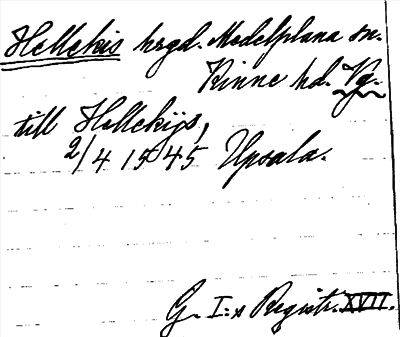 Hellekis hrgd. Medelplana sn.
Kinne hd. Vg.
till Hellekijs,
2/4 1545 Upsala.
G. I:s Registr. XVII.